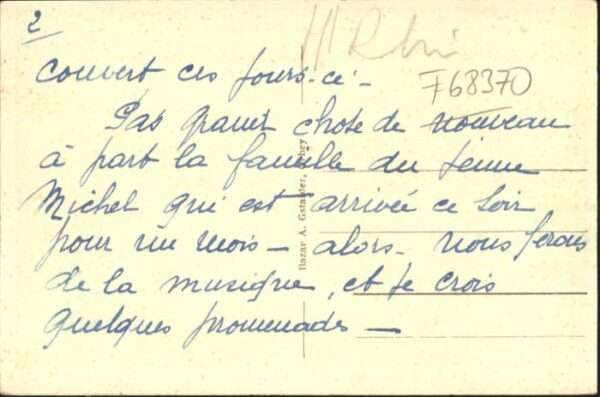 2
Ht Rhin
F68370
couvert ces jours-ci -
Pas grand chose de nouveau
à part la famille du jeune
Michel qui est arrivée ce soir
pour un mois - alors - nous ferons
de la musique, et je crois
quelques promenades -
Bazar A. Gstalder, Orbey